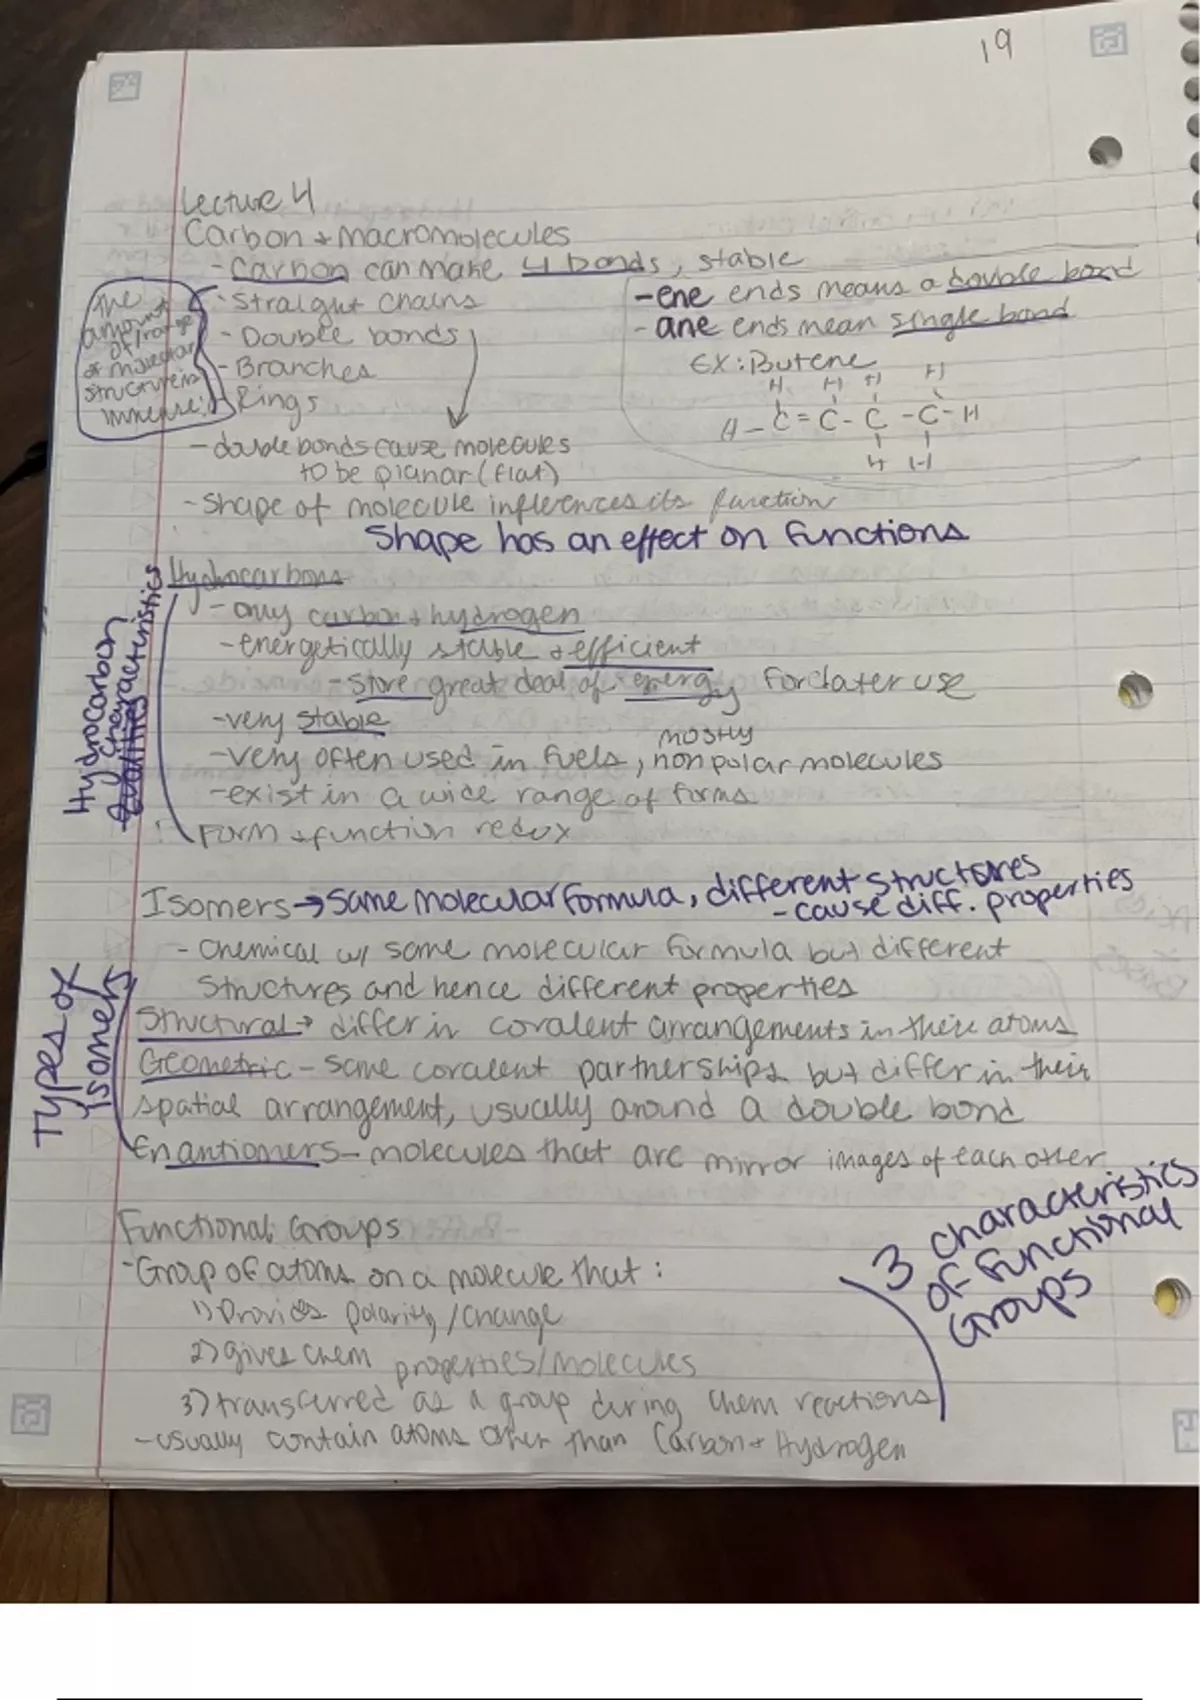 19
Lecture 4
Carbon + Macromolecules
- Carbon can make 4 bonds, stable
- Straight chains
- Double bonds
- Branches
- Rings
The
amount
of/range
of molecular
structure is
immense!
- double bonds cause molecules
to be planar (flat)
-ene ends means a double bond
- ane ends mean single bond
EX: Butene
H H H H
H - C = C - C - C - H
H H
- Shape of molecule influences its function
Shape has an effect on functions
Hydrocarbon
Qualities characteristics
Hydrocarbons
- only carbon + hydrogen
- energetically stable + efficient
- store great deal of energy for later use
- very stable
- very often used in fuels, mostly nonpolar molecules
- exist in a wide range of forms
Form + function redux
Isomers → Same molecular formula, different structures
- cause diff. properties
- Chemical w/ same molecular formula but different
structures and hence different properties
Types of
isomers
Structural → differ in covalent arrangements in their atoms
Geometric - same covalent partnerships but differ in their
spatial arrangement, usually around a double bond
Enantiomers - molecules that are mirror images of each other
Functional Groups
- Group of atoms on a molecule that:
1) Provides polarity/change
2) gives chem properties/molecules
3) transferred as a group during chem reactions
3 characteristics
of functional
Groups
- usually contain atoms other than Carbon + Hydrogen